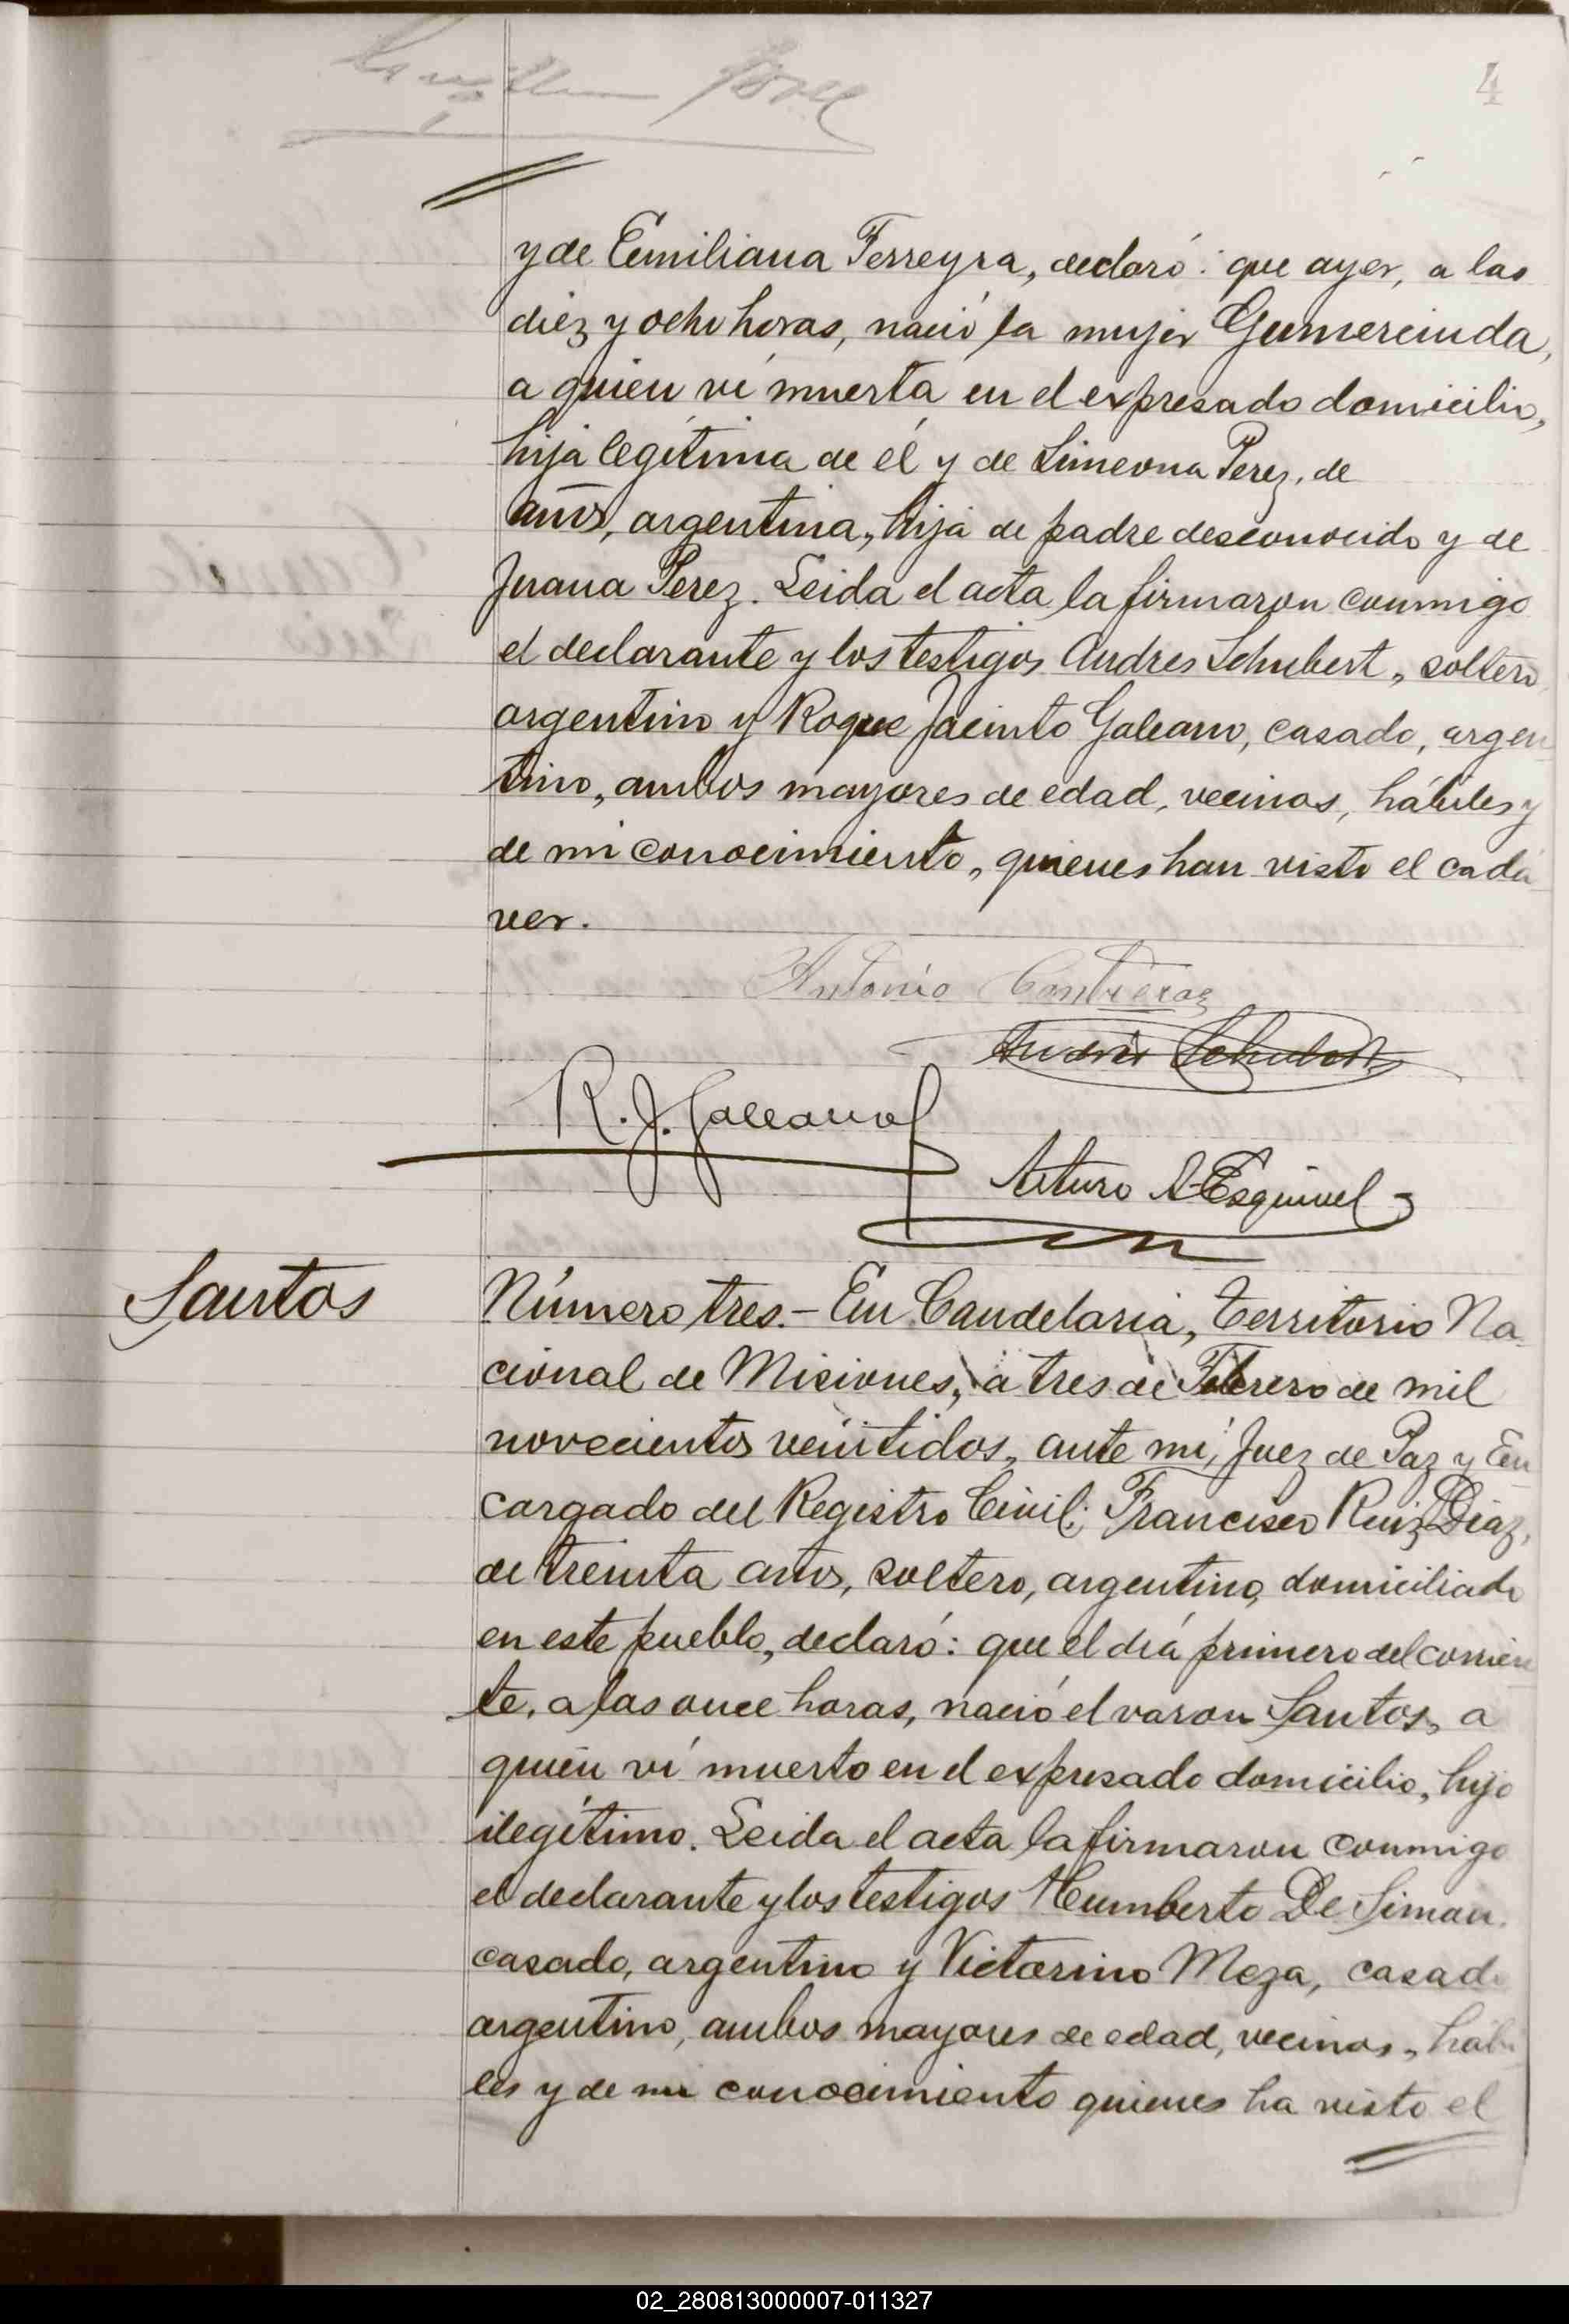 4
y de Emiliana Ferreyra, declaró: que ayer, a las
diez y ocho horas, nació la mujer Gumercinda,
a quien ví muerta en el expresado domicilio,
hija legítima de él y de Simeona Perez, de
años, argentina, hija de padre desconocido y de
Juana Perez. Leida el acta la firmaron conmigo
el declarante y los testigos Andres Schubert, soltero
argentino y Roque Jacinto Galeano, casado, argen
tino, ambos mayores de edad, vecinos, hábiles y
de mi conocimiento, quienes han visto el cadá
ver.
Antonio Contreras
Andrés Schubert
R. J. Galeano
Arturo A. Esquivel
Santos
Número tres.- En Candelaria, Territorio Na
cional de Misiones, a tres de Febrero de mil
novecientos veintidos, ante mí, Juez de Paz y En
cargado del Registro Civil; Francisco Ruiz Diaz,
de treinta años, soltero, argentino, domiciliado
en este pueblo, declaró: que el día primero del corrien
te, a las once horas, nació el varon Santos, a
quien ví muerto en el expresado domicilio, hijo
ilegítimo. Leida el acta la firmaron conmigo
el declarante y los testigos Humberto De Simon,
casado, argentino y Victorino Meza, casado
argentino, ambos mayores de edad, vecinos, hábi
les y de mi conocimiento quienes ha visto el
02_280813000007-011327